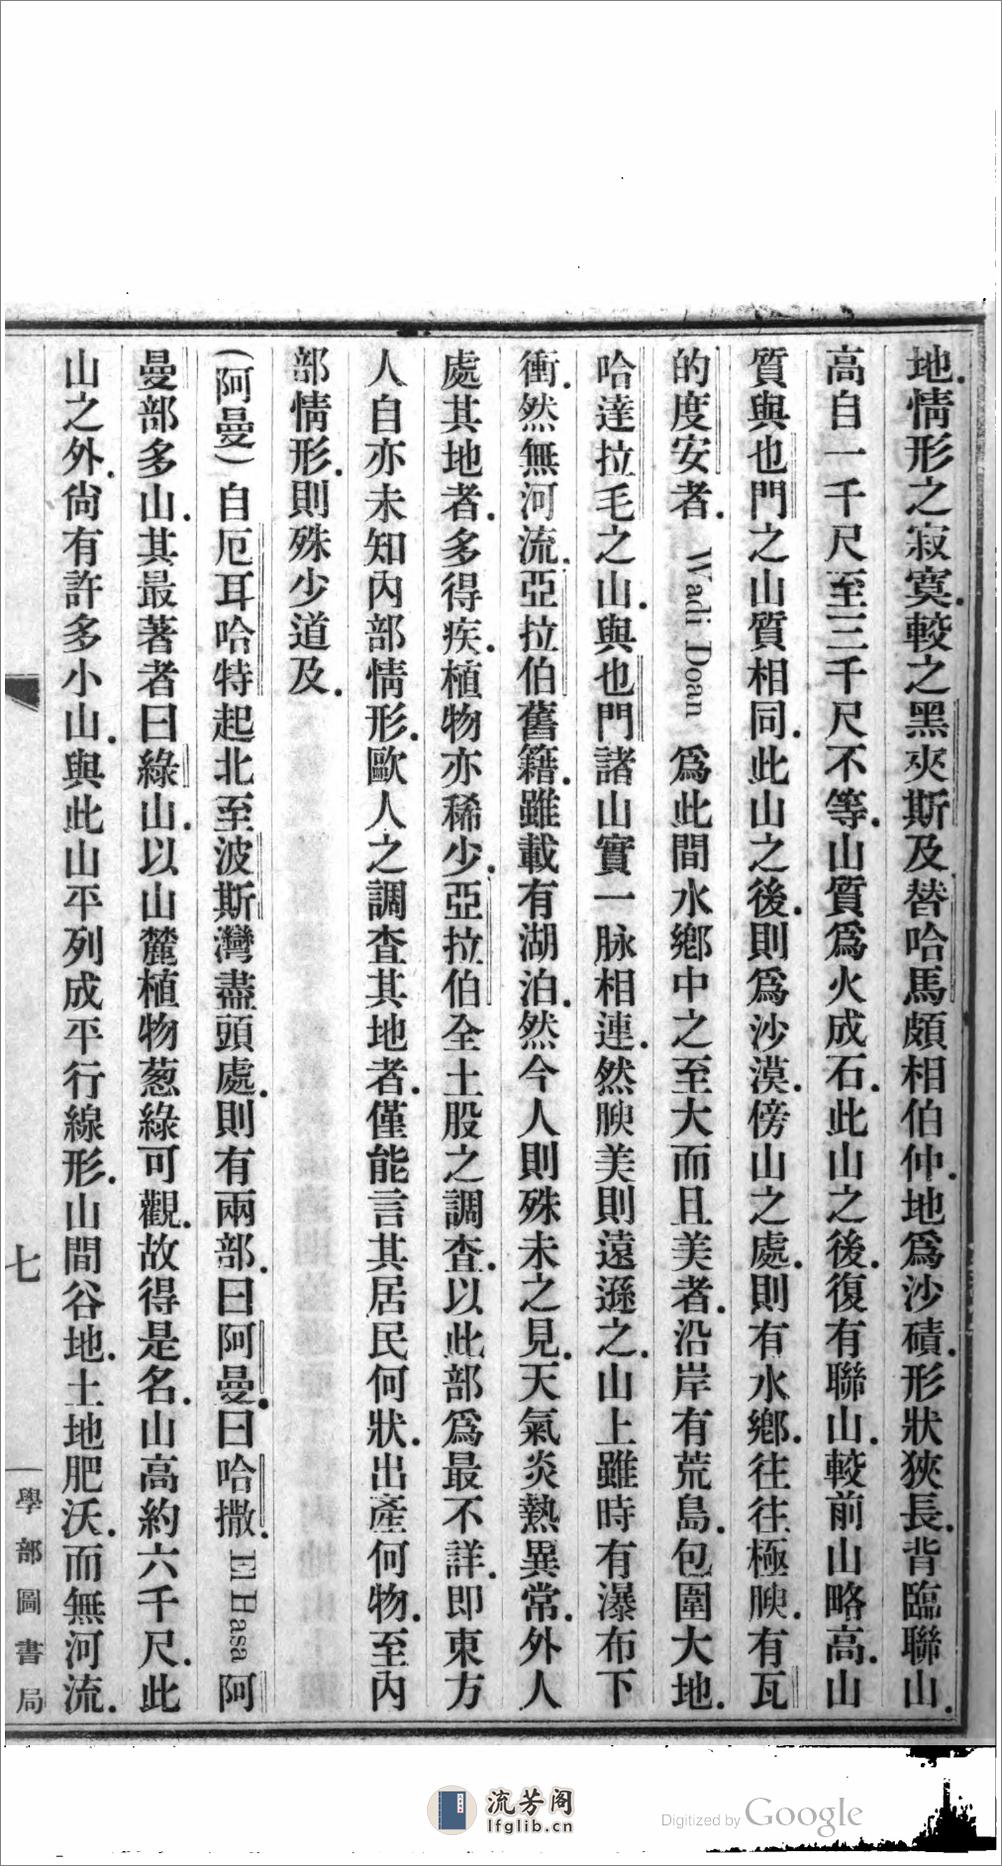 地.情形之寂寞.較之黑夾斯及替哈馬頗相伯仲.地爲沙磧.形狀狹長.背臨聯山.
高自一千尺至三千尺不等.山質爲火成石.此山之後.復有聯山.較前山略高.山
質與也門之山質相同.此山之後.則爲沙漠.傍山之處.則有水鄉.往往極腴.有瓦
的度安者.Wadi Doan爲此間水鄉中之至大而且美者.沿岸有荒島.包圍大地.
哈達拉毛之山.與也門諸山實一脉相連.然腴美則遠遜之.山上雖時有瀑布下
衝.然無河流.亞拉伯舊籍.雖載有湖泊.然今人則殊未之見.天氣炎熱異常.外人
處其地者.多得疾.植物亦稀少.亞拉伯全土股之調查.以此部爲最不詳.即東方
人自亦未知內部情形.歐人之調查其地者.僅能言其居民何狀.出產何物.至內
部情形.則殊少道及.
(阿曼)自厄耳哈特起北至波斯灣盡頭處.則有兩部.曰阿曼.曰哈撒.El Hasa阿
曼部多山.其最著者曰綠山.以山麓植物葱綠可觀.故得是名.山高約六千尺.此
山之外.尙有許多小山.與此山平列成平行線形.山間谷地.土地肥沃.而無河流.
七
學部圖書局
流芳閣
lfglib.cn
Digitized by Google